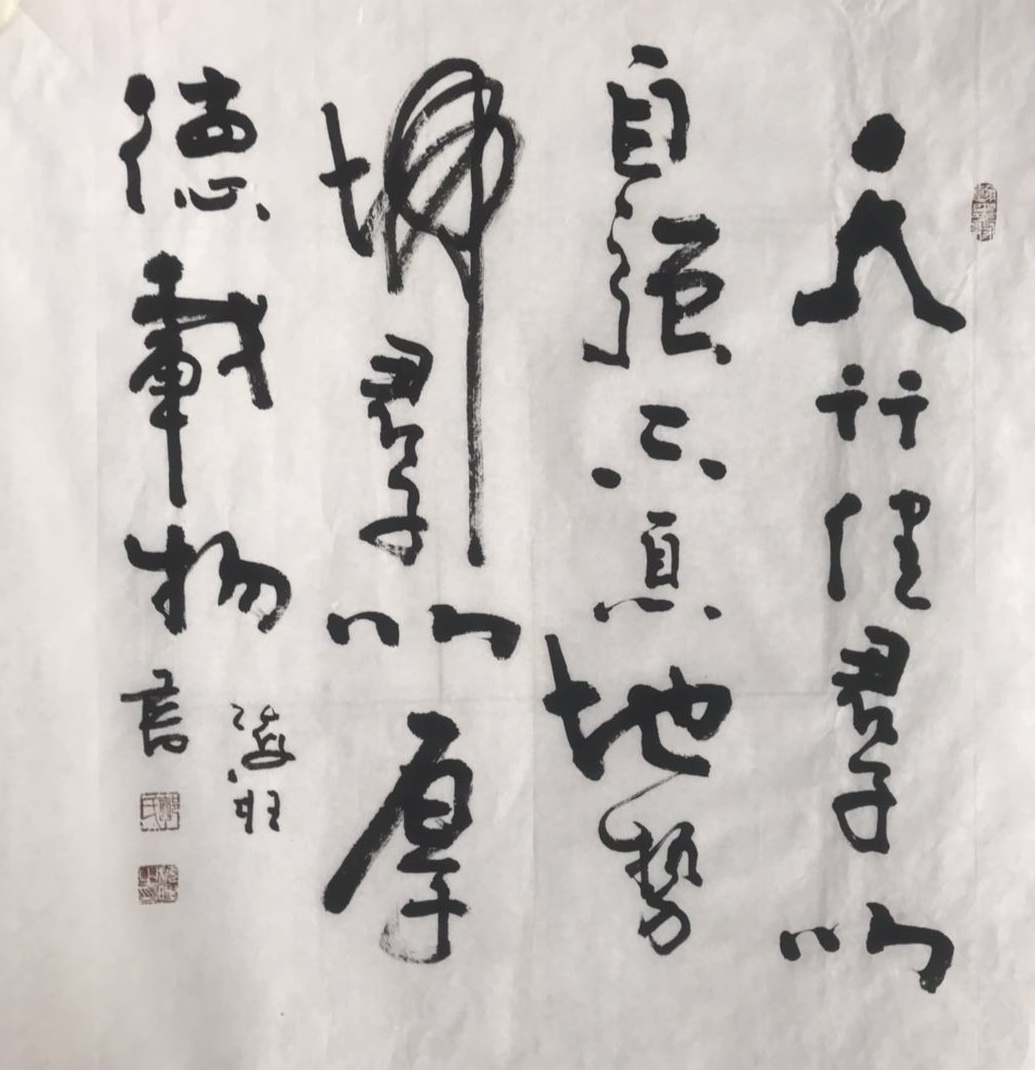 天行健君子以
自强不息地势
坤君子以厚
德载物
海旺
书